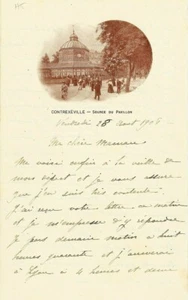 CONTREXÉVILLE — SOURCE DU PAVILLON
Vendredi 28 août 1906
Ma chère Maman
Me voici enfin à la veille de
mon départ et je vous assure
que j'en suis très contente.
J'ai reçu votre lettre ce matin
et je m'empresse d'y répondre
Je pars demain matin à huit
heures quarante et j'arriverai
à Lyon à 4 heures et demie